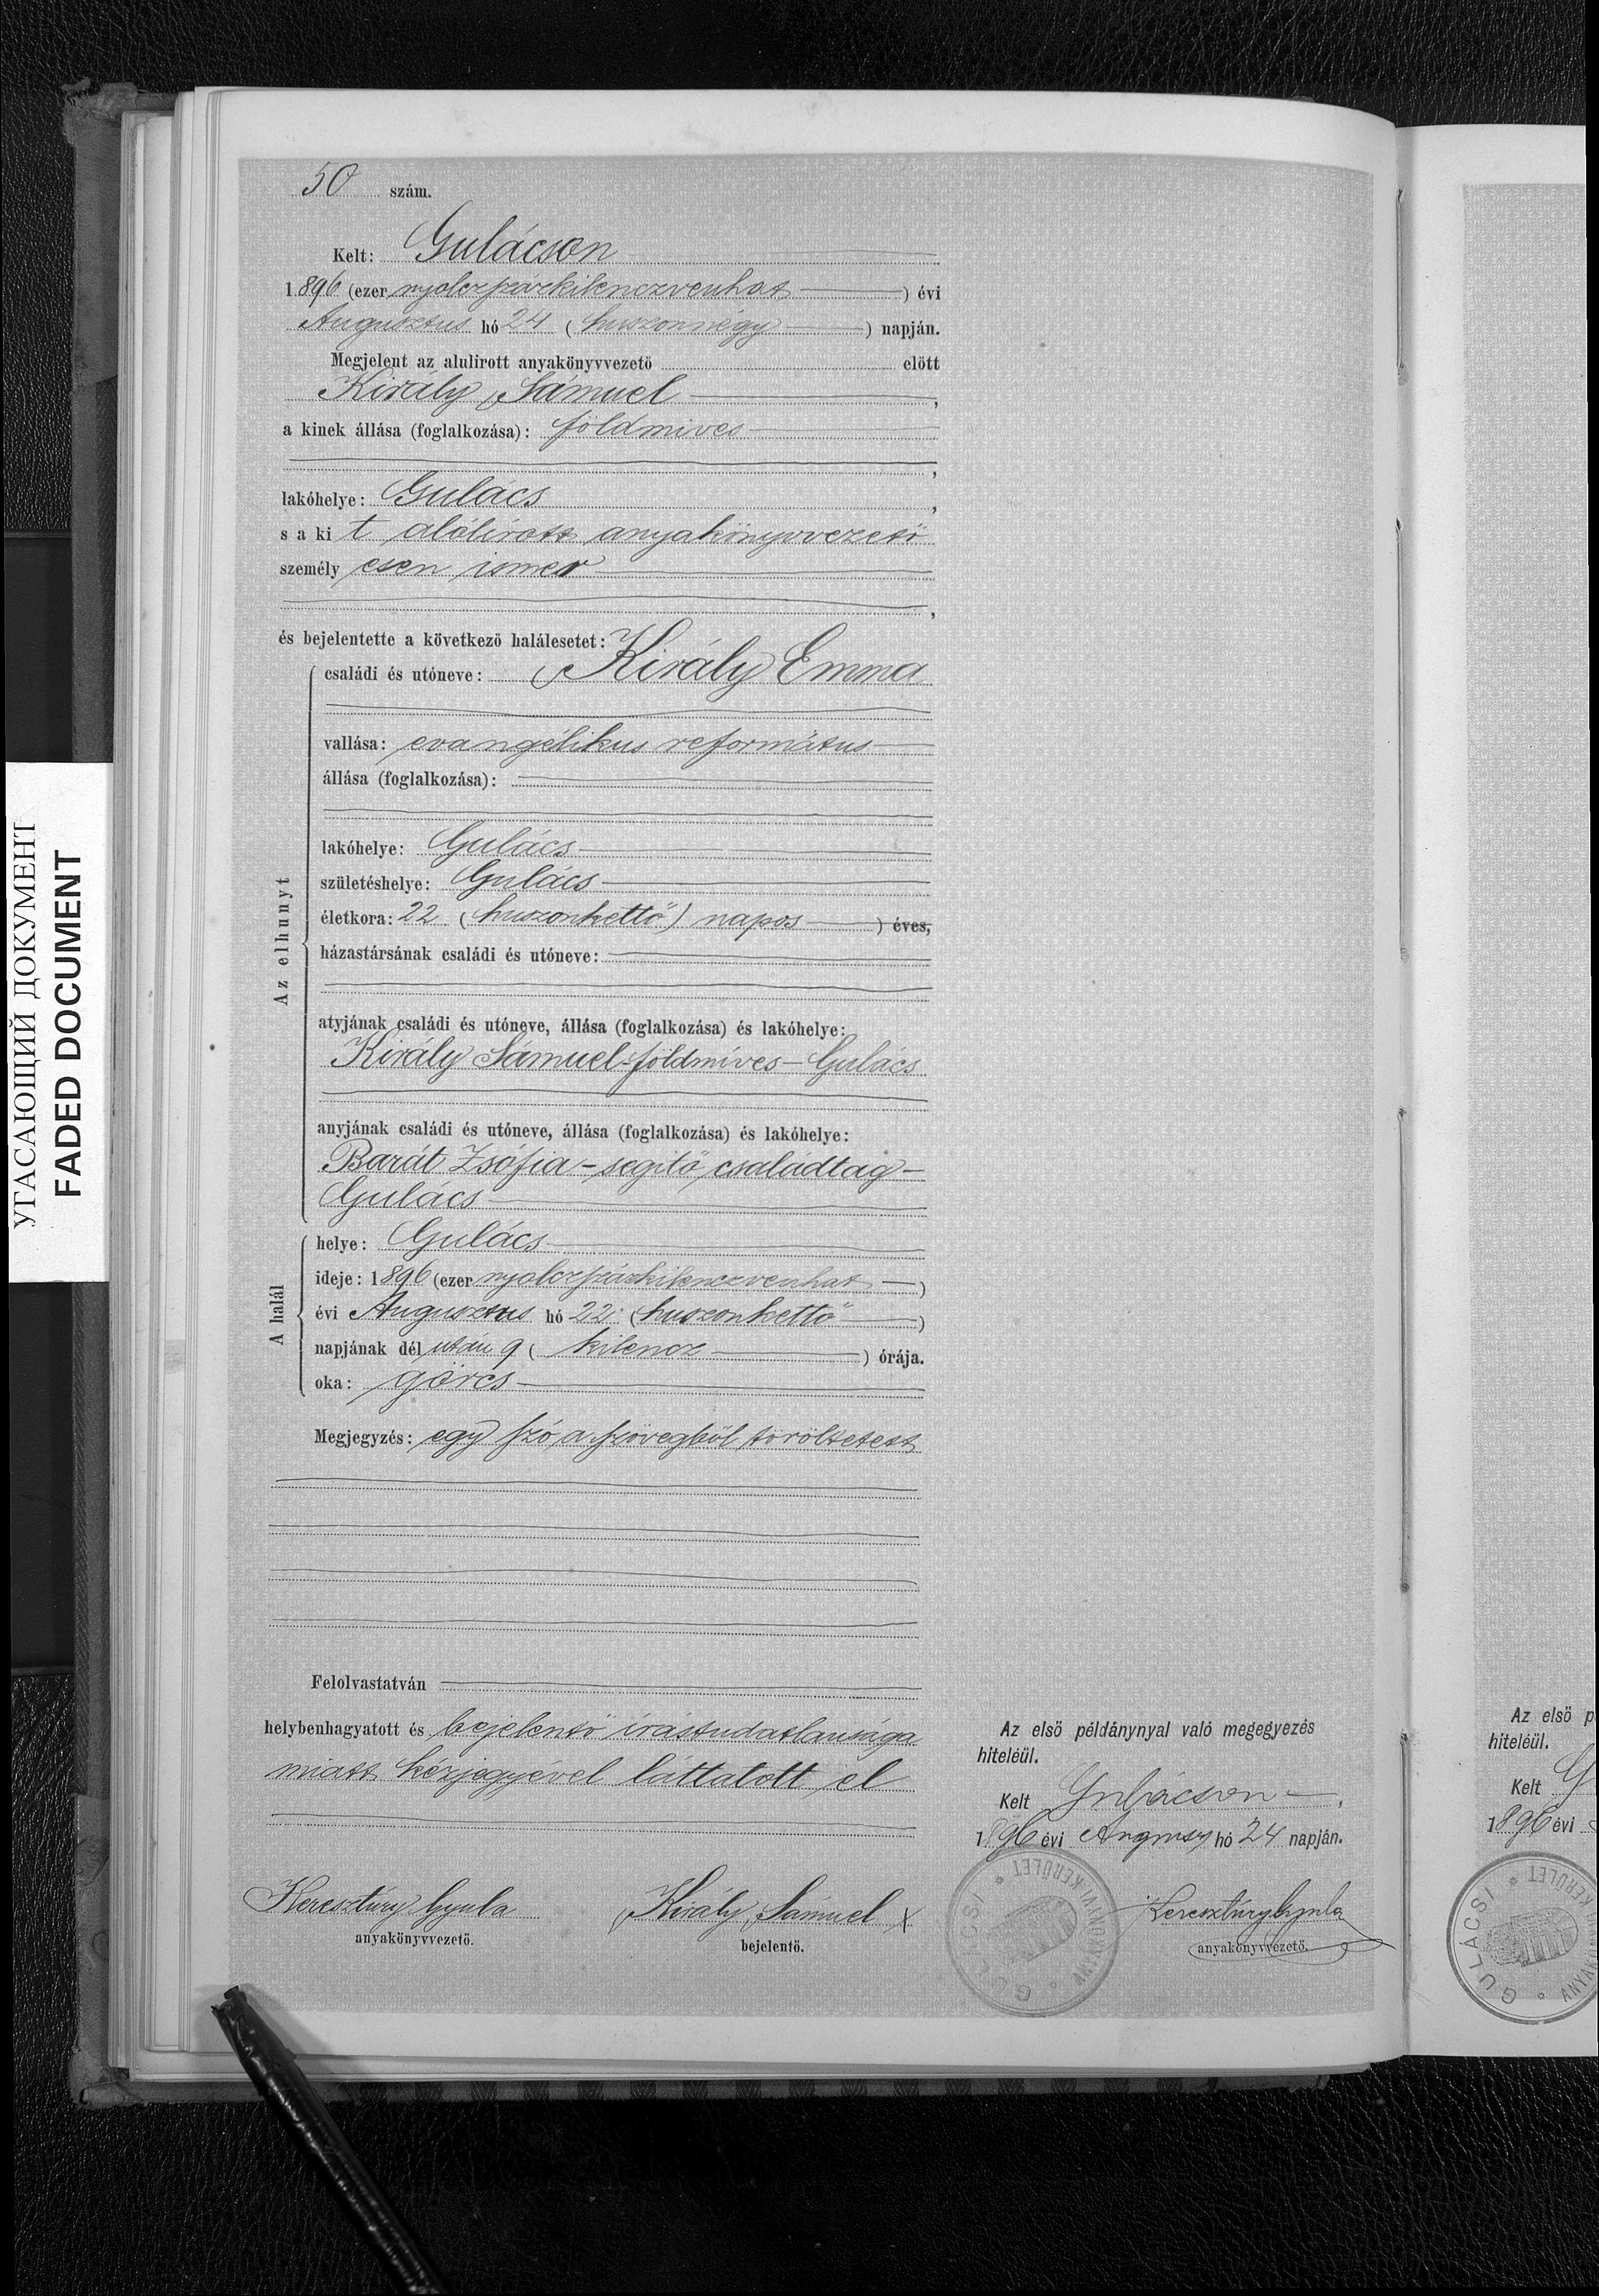 50 szám.
Kelt: Gulácson
1896 (ezer nyolczszázkilenczvenhat) évi
Augusztus hó 24 (huszonnégy) napján.
Megjelent az alulirott anyakönyvvezető előtt
Király Sámuel,
a kinek állása (foglalkozása): földmives
,
lakóhelye: Gulács,
s a kit alólirott anyakönyvvezető
személyesen ismer
,
és bejelentette a következő halálesetet:
Az elhunyt
családi és utóneve: Király Emma
vallása: evangélikus református
állása (foglalkozása):
lakóhelye: Gulács
születéshelye: Gulács
életkora: 22 (huszonkettő) napos ) éves,
házastársának családi és utóneve:
atyjának családi és utóneve, állása (foglalkozása) és lakóhelye:
Király Sámuel - földmives - Gulács
anyjának családi és utóneve, állása (foglalkozása) és lakóhelye:
Barát Zsófia - segitő családtag -
Gulács
A halál
helye: Gulács
ideje: 1896 (ezer nyolczszázkilenczvenhat)
évi Augusztus hó 22 (huszonkettő)
napjának dél után 9 (kilencz) órája.
oka: görcs
Megjegyzés: egy szó a szövegből töröltetett
Felolvastatván
helybenhagyatott és bejelentő irástudatlansága
miatt kézjegyével láttatott el
Keresztúry Gyula
anyakönyvvezető.
Király Sámuel x
bejelentő.
Az első példánynyal való megegyezés
hiteléül.
Kelt Gulácson,
1896 évi Augusz hó 24 napján.
Keresztúry Gyula
anyakönyvvezető.
GULÁCSI * ANYAKÖNYVI KERÜLET *
Az első p
hiteléül.
Kelt G
1896 évi
GULÁCSI * KERÜLET ANYAKÖNY
УГАСАЮЩИЙ ДОКУМЕНТ
FADED DOCUMENT